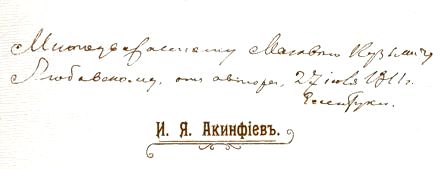 Многоуважаемому Матвею Кузьмичу
Любавскому, отъ автора, 27 іюля 1911 г.
Ессентуки.
И. Я. Акинфіевъ.